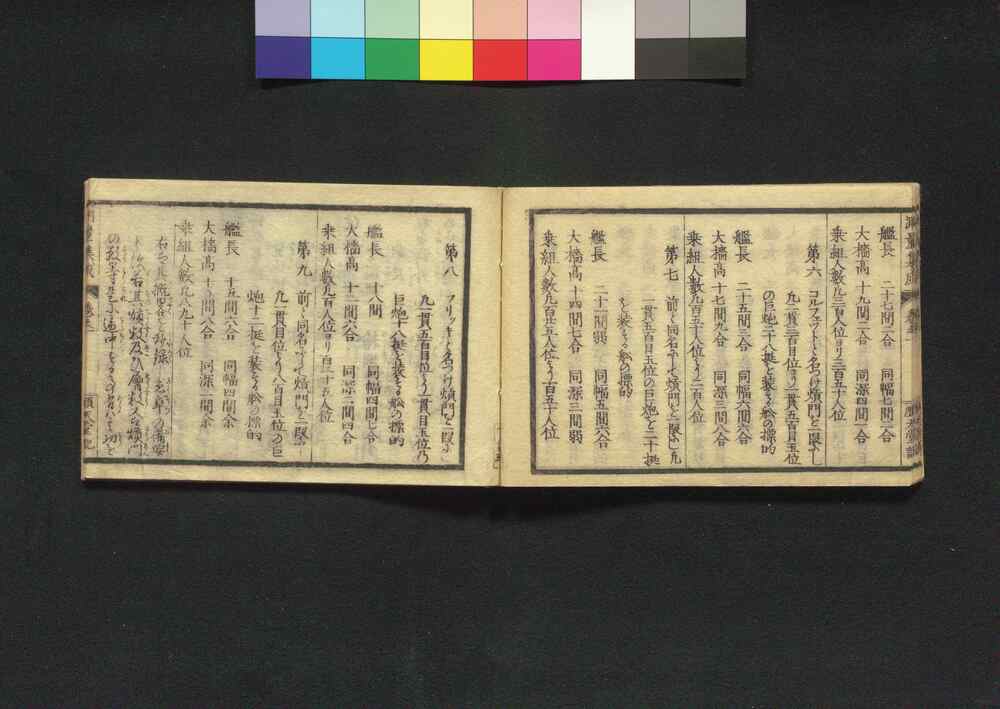 艦長　二十七間二合　同幅七間二合
大檣高　十九間二合　同深四間一合
乗組人数凡三百人位ヨリ三百五十人位
第六　コルフェットト名つけ熕門を一層ふし
凡一貫三百目位ヨリ一貫五百目玉位
の巨炮二十八挺を装せる舩の標的
艦長　二十五間三合　同幅六間六合
大檣高　十七間九合　同深三間八合
乗組人数凡百五十人位より二百人位
第七　前と同名ふして熕門を一層ふし凡
一貫五百目玉位の巨炮を二十挺
を装せる舩の標的
艦長　二十二間弱　同幅五間六合
大檣高　十四間七合　同深三間弱
乗組人数凡百廿五人位より百五十人位
第八　フリッキと名つけ熕門を一層ふし
凡一貫五百目位より一貫目玉位乃
巨炮十八挺を装せる舩の標的
艦長　十八間　同幅四間七合
大檣高　十二間六合　同深二間四合
乗組人数凡百人位ヨリ百二十五人位
第九　前と同名ふして熕門を一層ふし
凡一貫目位より八百目玉位の巨
炮十二挺を装せる舩の標的
艦長　十五間六合　同幅四間余
大檣高　十一間六合　同深二間余
乗組人数凡八九十人位